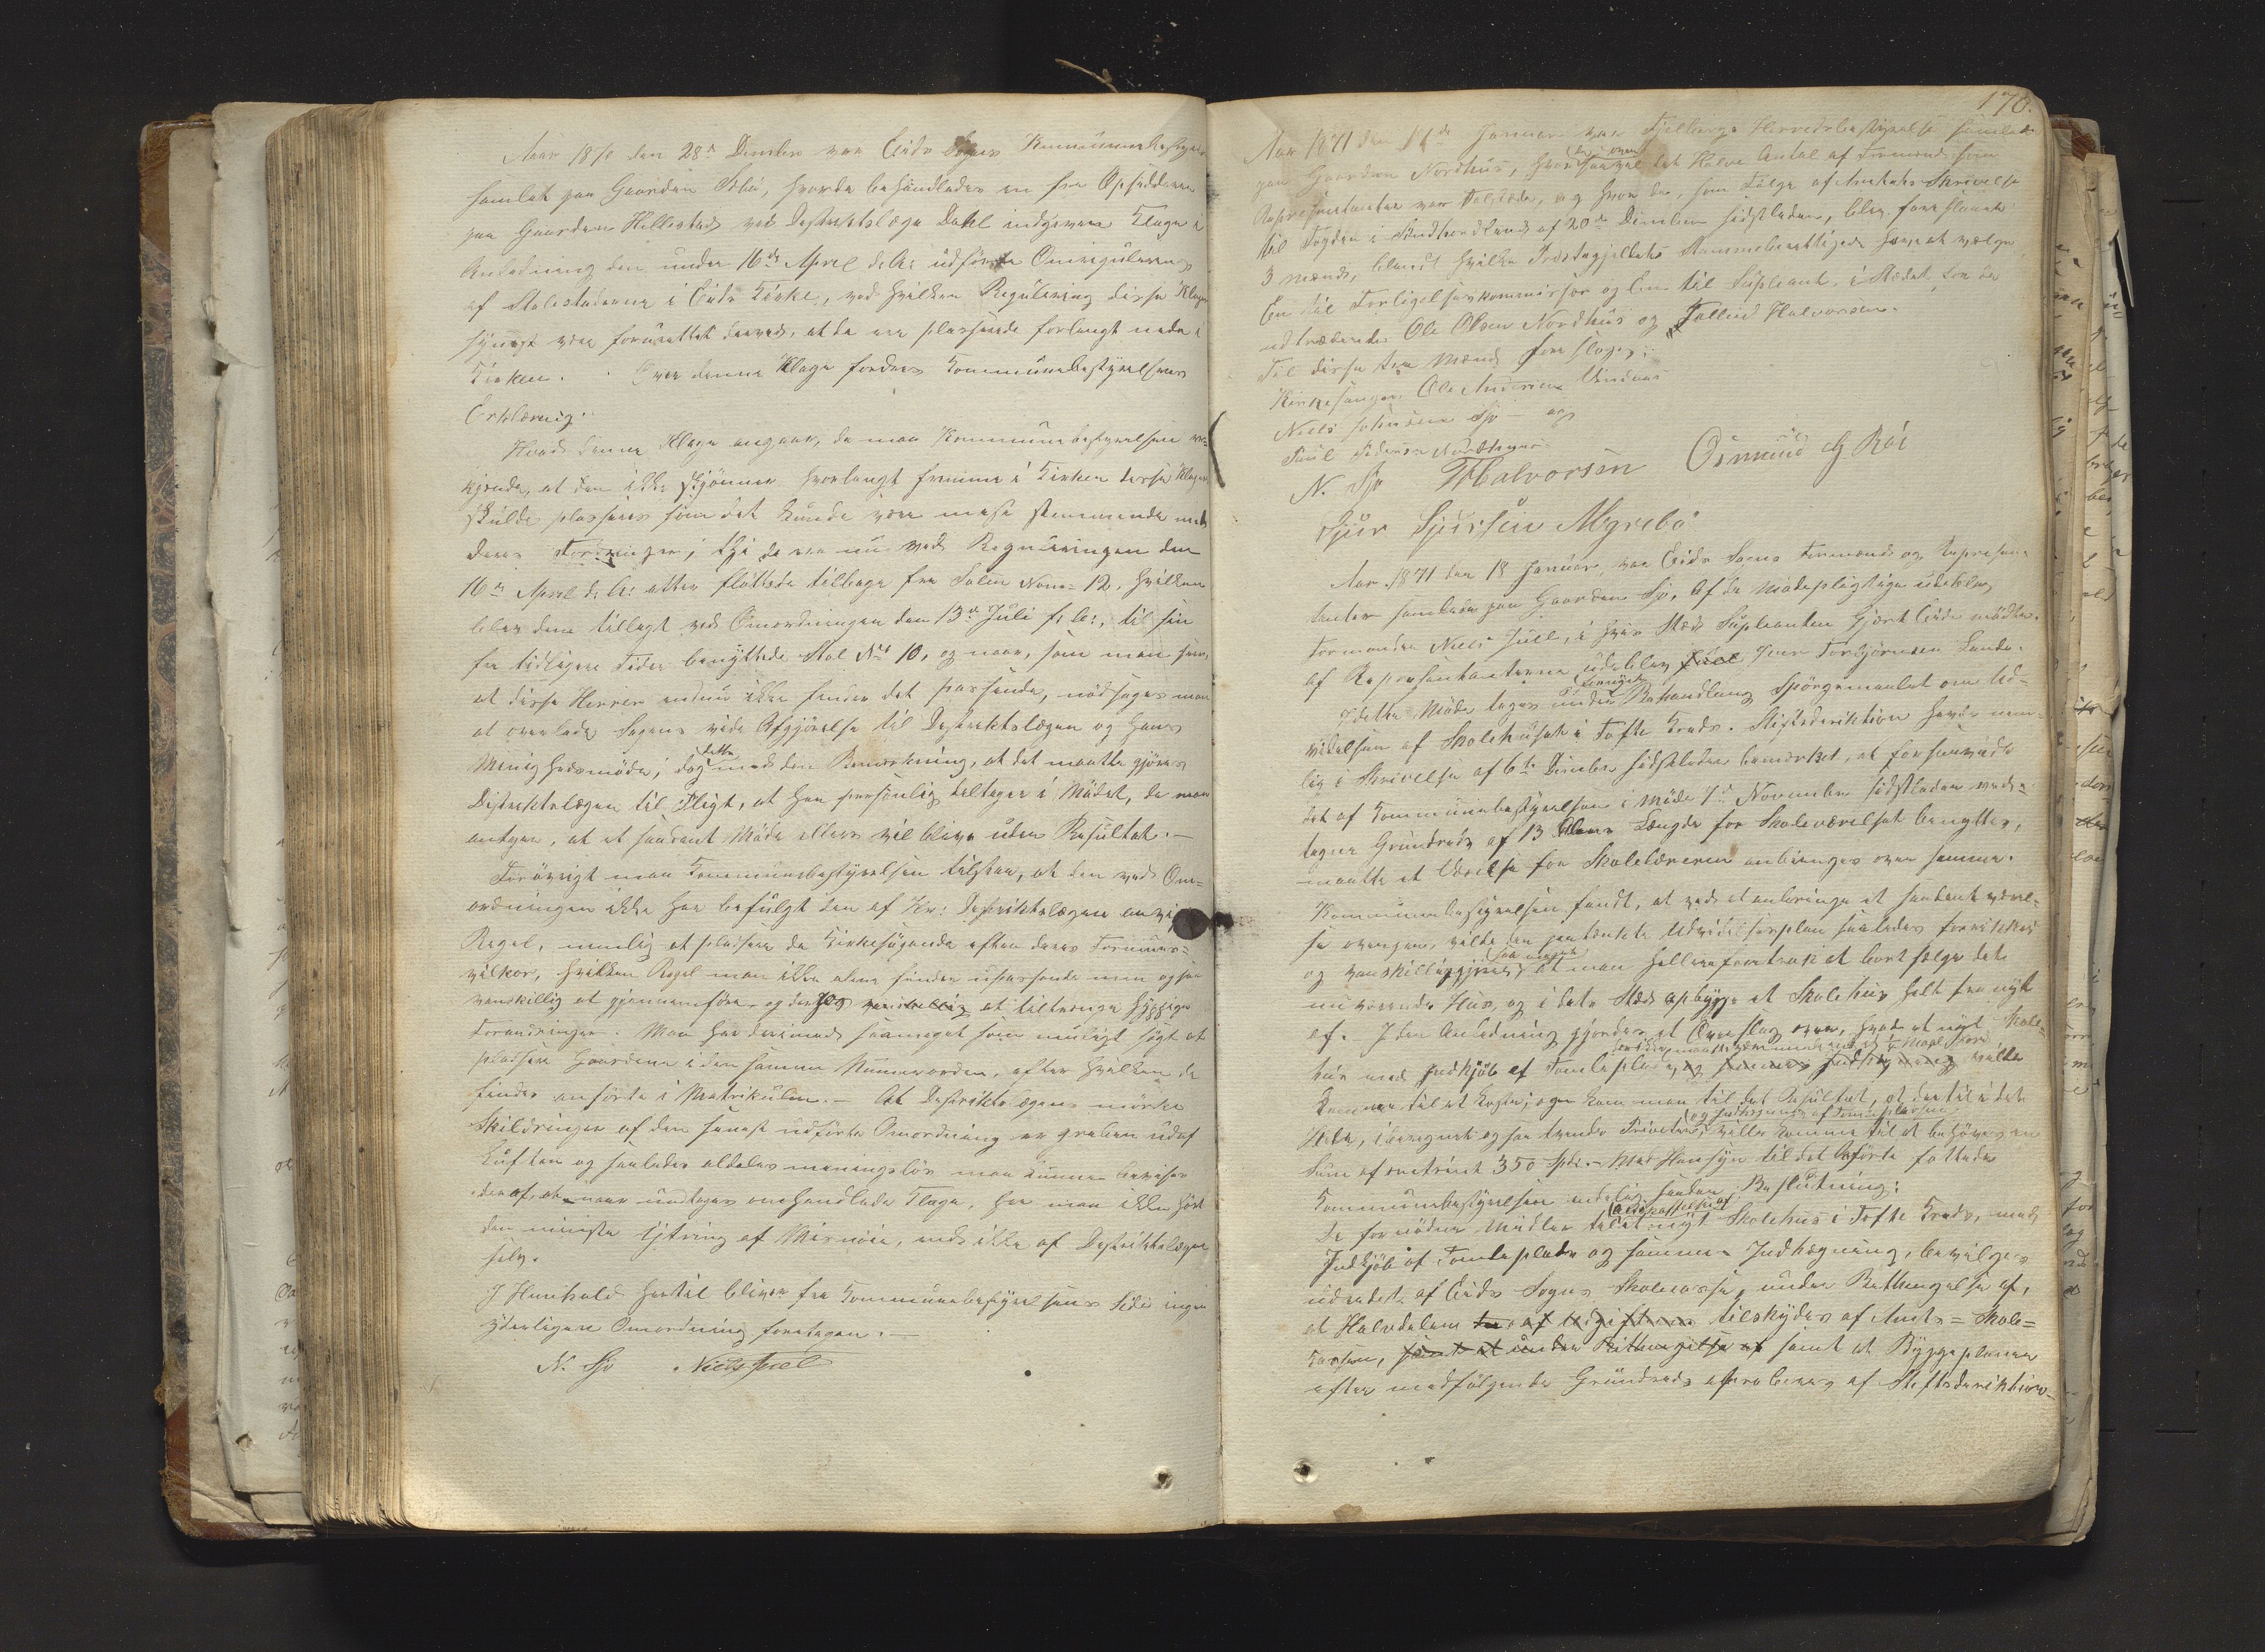 Aar 1870 den 28de Dcember var Eids Sogns Kommunebestyrelse
samlet paa Gaarden Sebø, hvorda behandledes en fra Opsidderne
paa Gaarden Hillestad ved Destriktslæge Dahl indgiven Klage i
Anledning den under 16de April d. A. udførte Omregulering
af Stolestaderne i Eids Kirke, ved hvilken Regulering disse Klagere
synest være forurettet derved, at de ere plasserede forlangt nede i
Kirken. Over denne Klage fordres Kommunebestyrelsens
Erklæring.
Hvad denne Klage angaar, da maa Kommunebestyrelsen
kjende, at den ikke skjønner hvorlangt fremme i Kirken disse Klagere
skulde plasseres som det kunde være mest stemmende med
deres Formening; thi de ere nu ved Reguleringen den
16de April d. A. atter fløttede tilbage fra Stolen Nom= 12, hvilken
blev dem tillagt ved Omordningen den 13de Juli f. A., til sin
fra tidligere Tider benyttede Stol No 10, og naar, som man ser,
at disse Herrer endnu ikke finder det passende, nødsages man
at overlade Sagens vidre Afgjørelse til Destriktslægen og hans
Menighedsmøde; dog dette med den Bemærkning, at det maatte gjøres
Distriktslægen til Pligt, at han personlig deltager i Mødet, da man
antager, at et saadant Møde ellers vil blive uden Resultat.—
Forøvrigt maa Kommunebestyrelsen tilstaa, at den ved Om=
ordningen ikke har befulgt den af Hr: Destriktslægen
Regel, nemlig at plassere de Kirkesøgende efter deres Formues=
vilkor, hvilken Regel man ikke alene finder upassende men ogsaa
vanskellig at gjennemføre og at tiltrenge hyppige
Forandringer. Man har derimod saameget som muligt søgt at
plassere Gaardene i den samme Nummerorden, efter hvilken de
findes anførte i Matrikulen.— At Destriktslægens mørke
Skildringer af den senest udførte Omordning er greben udaf
Luften og saaledes aldeles meningsløs maa kunne bevises
deraf, at naar undtages omhandlede Klage, har man ikke hørt
den mindste Ytring af Misnøie, end ikke af Destriktslægen
selv.
I Henhold hertil bliver fra Kommunebestyrelsens Side ingen
yderligere Omordning foretagen.—
N. Sjo Niels Juel
170.
Aar 1871 den Januar var Fjelberg Herredsbestyrelse samlet
paa Gaarden Nordhus, hvor saavel det halve Antal af Formænd som
Representanter var tilstede, og hvor da, som Følge af Amtets Skrivelse
til Fogden i Søndhordland af 20de Dcember sidstleden, blev foreslaaet
3 mænd, blandt hvilke Præstegjeldets Stemmeberettigede have at vælge
En til Forligelseskommissær og En til Supleant, i Stedet for de
udtrædende Ole Olsen Nordhus og Tolleid Halvorsen.
Til disse tre Mænd foresloges:
Kirkesanger Ole Andersen Undaas
Niels Johnsen Sjo — og
Poul Pedersen
N. Sjo THalvorsen Osmund Røi
Sjur Sjursen Myrebø
Aar 1871 den 18 Januar, var Eids Sogns Formænd og Represen-
tanter samlede paa Gaarden Sjo, Af de mødepligtige udeblev
Formanden Niels Juel, i hvis Sted Supleanten Gjert Eide mødte.
af Representanterne udeblev Iver Torbjørnsen Lande.
I dette Møde toges fornyet under Behandling Spørgsmaalet om Ud-
videlsen af Skolehuset i Tofte Kreds. Stiftsdirektion havde nem-
lig i Skrivelse af 6te Dcember sidstleden bemærket, at forsaavidt
det af Kommunebestyrelsen i Møde 7de November sidstleden ved-
tagne Grundrids af 13 Alens Længde for Skoleværelset benyttes,
maatte et Værelse for Skolelæreren anbringes over samme.
Kommunebestyrelsen fandt, at ved at anbringe et saadant værel-
se ovenpaa, vilde den paatænkte Udvidelsesplan saaledes forrykkes
og vanskelliggjøres saa meget at man hellere foretrak at bortsælge det
nuværende Hus, og i dets Sted opbygge et Skolehus helt fra nyt
af. I den Anledning gjordes et Overslag over, hvad et nyt Skole-
hus med Indkjøb af Tomteplads, og sammes Indhegning vilde
komme til at koste; og kom man til det Resultat, at dertil i det
Hele, iberegnet ogsaa tvende Priveter og Indhegning af Tomteplassen, ville komme til at behøves en
Sum af omtrent 350 Spd.— Med Hensyn til det Anførte fattede
Kommunebestyrelsen endelig saadan Beslutning:
De fornødne Midler til Anskaffelse af nyt Skolehus i Tofte Kreds, med
Indkjøb af Tomteplads og sammes Indhegning, bevilges
udredet af Eids Sogns Skolecasse, under Betingelse af,
at Halvdelen der af Udgifterne tilskydes af Amts=Skole=
kassen, samt at under Bettingelse af samt at Byggeplanen
efter medfølgende Grundrids approberes af Stiftsdirektion-